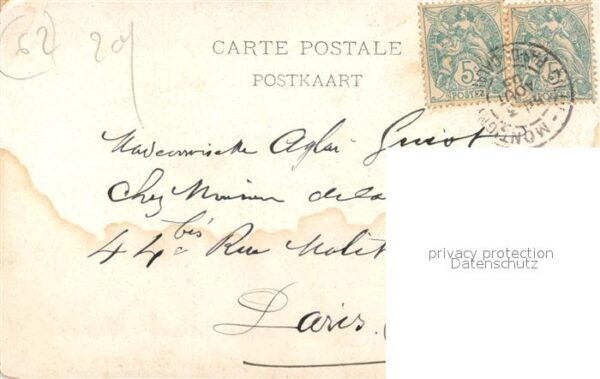 (62 20f
CARTE POSTALE
POSTKAART
5 5
POSTES POSTES
MONTIGNY
Mademoiselle Aglaé Guiot
Chez Monsieur de la
44 bis Rue Molit
Paris
privacy protection
Datenschutz